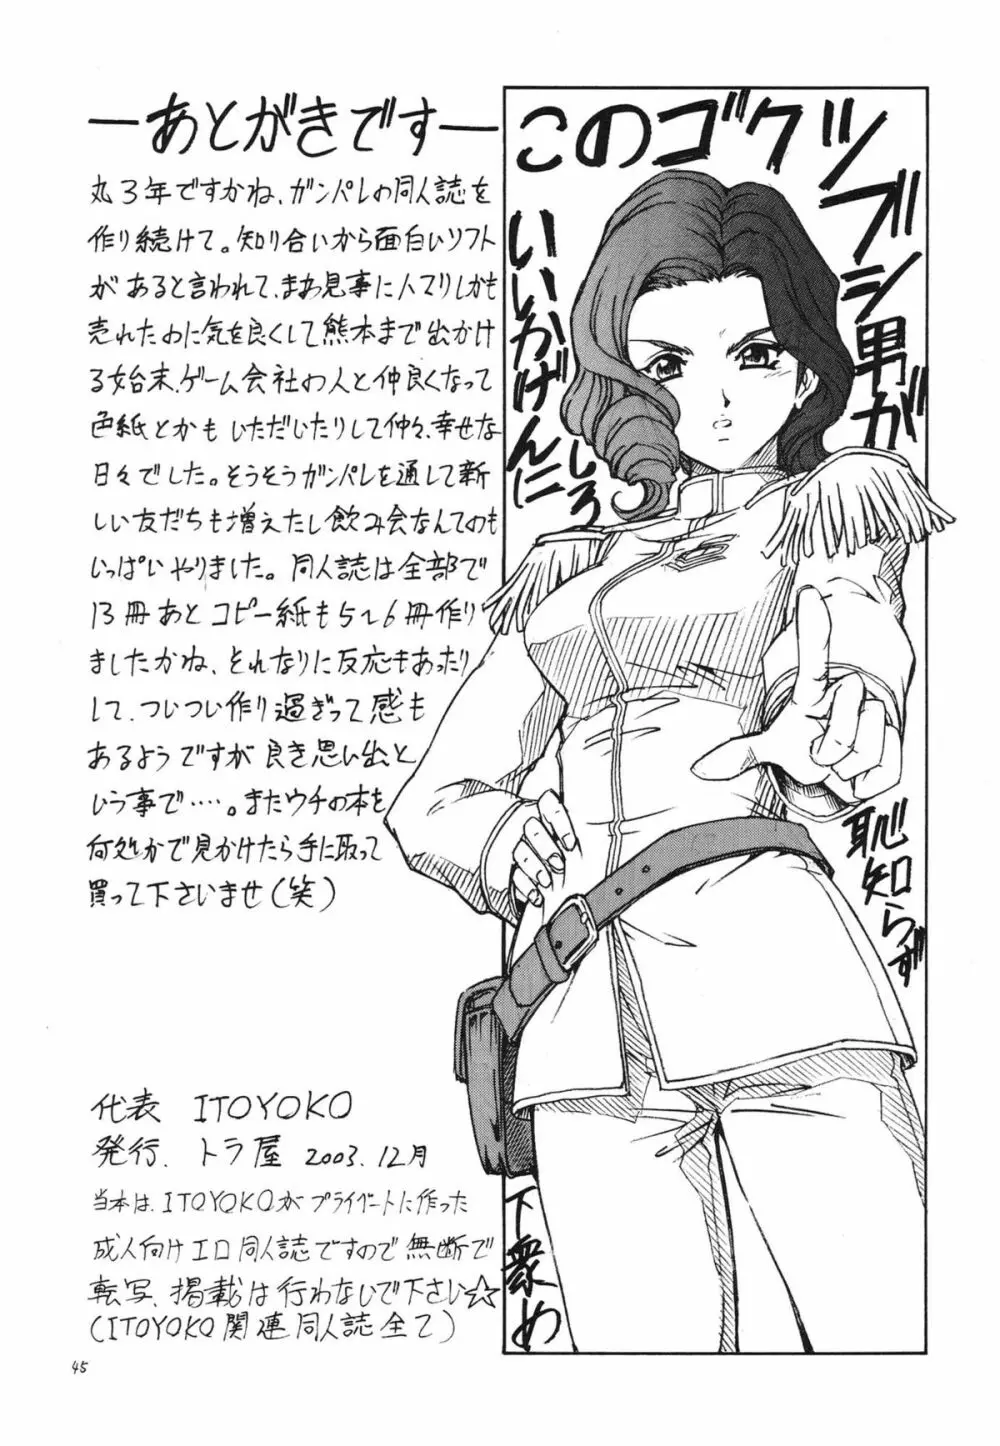 ―あとがきです―
丸3年ですかね、ガンパレの同人誌を
作り続けて。知り合いから面白いソフト
があると言われて、まあ見事に人マリしかも
売れたのに気を良くして熊本まで出かけ
る始末、ゲーム会社の人と仲良くなって
色紙とかもいただいたりして仲々、幸せな
日々でした。そうそうガンパレを通して新
しい友だちも増えたし飲み会なんてのも
いっぱいやりました。同人誌は全部で
13冊あとコピー紙も5〜6冊作り
ましたかね、それなりに反応もあったり
して、ついつい作り過ぎって感も
あるようですが良き思い出と
いう事で‥‥。またウチの本を
何処かで見かけたら手に取って
買って下さいませ(笑)
代表 ITOYOKO
発行、トラ屋 2003.12月
当本は、ITOYOKOがプライベートに作った
成人向けエロ同人誌ですので無断で
転写、掲載は行わないで下さい☆
(ITOYOKO関連同人誌全て)
このゴクツブシ男が
いいかげんに
しろ
恥知らず
下衆め
45